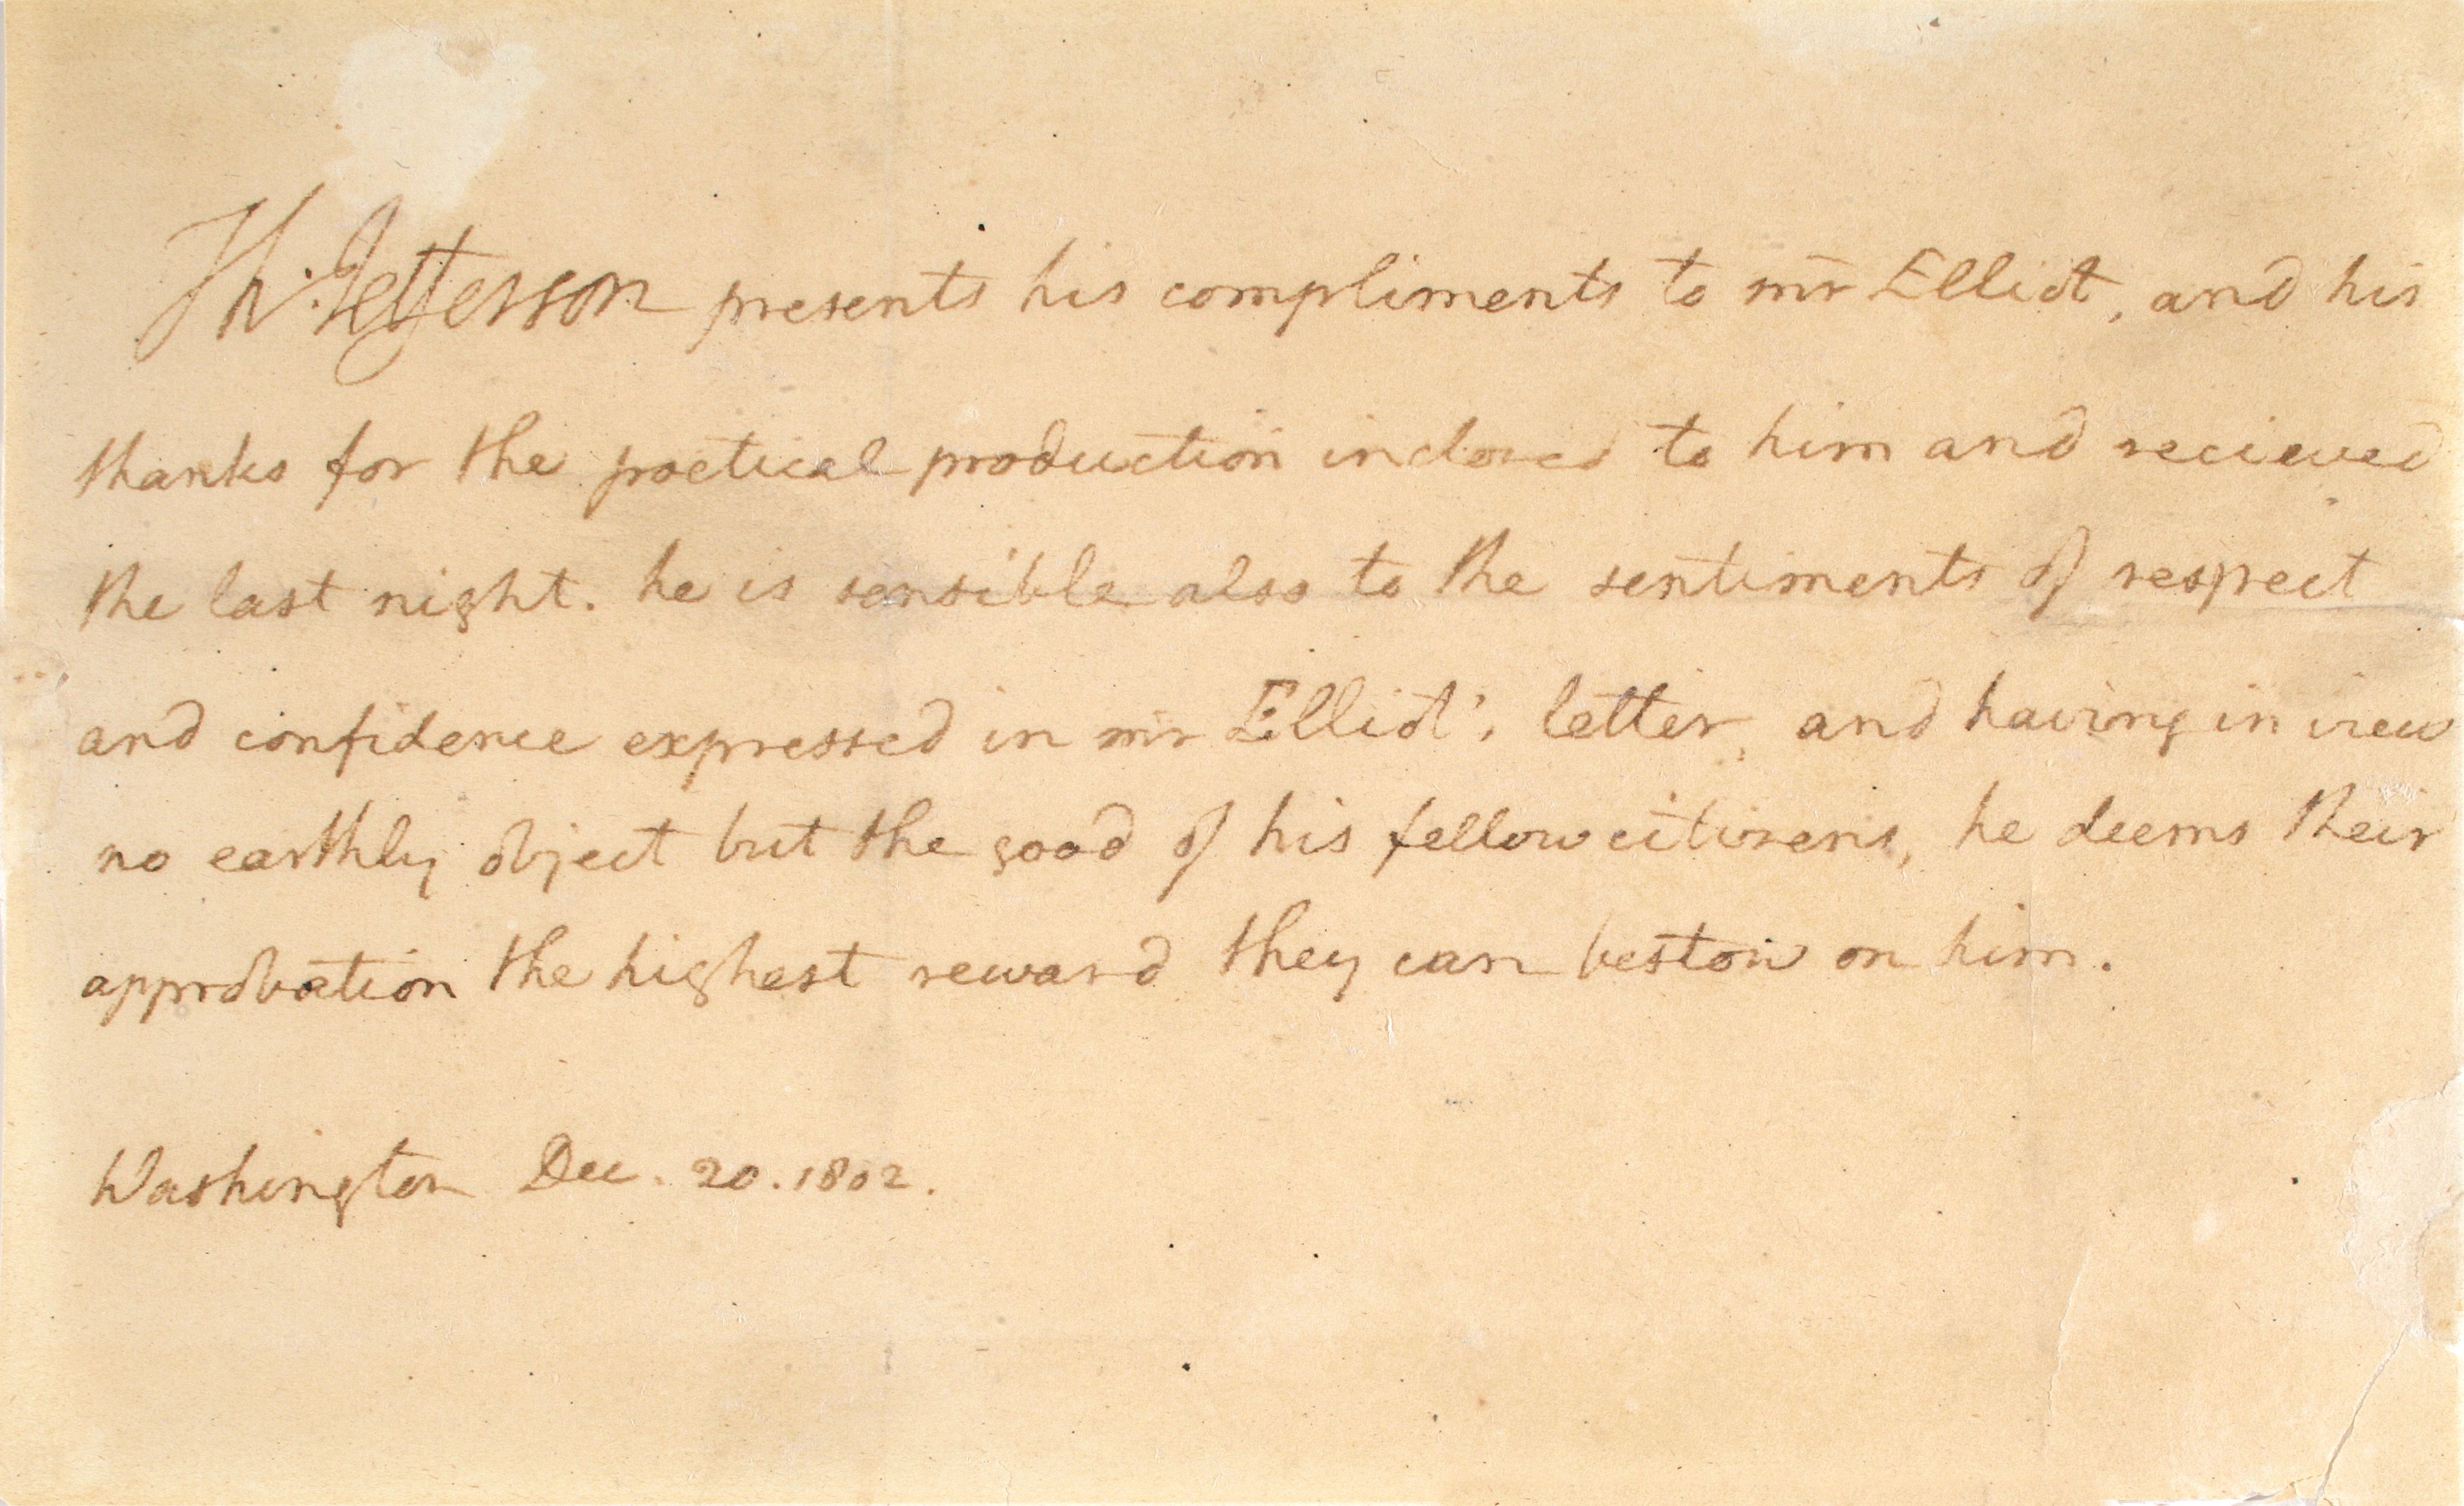 Th: Jefferson presents his compliments to mr Elliot, and his
thanks for the poetical production inclosed to him and recieved
the last night. he is sensible also to the sentiments of respect
and confidence expressed in mr Elliot's letter, and having in view
no earthly object but the good of his fellow citizens, he deems their
approbation the highest reward they can bestow on him.
Washington Dec. 20. 1802.